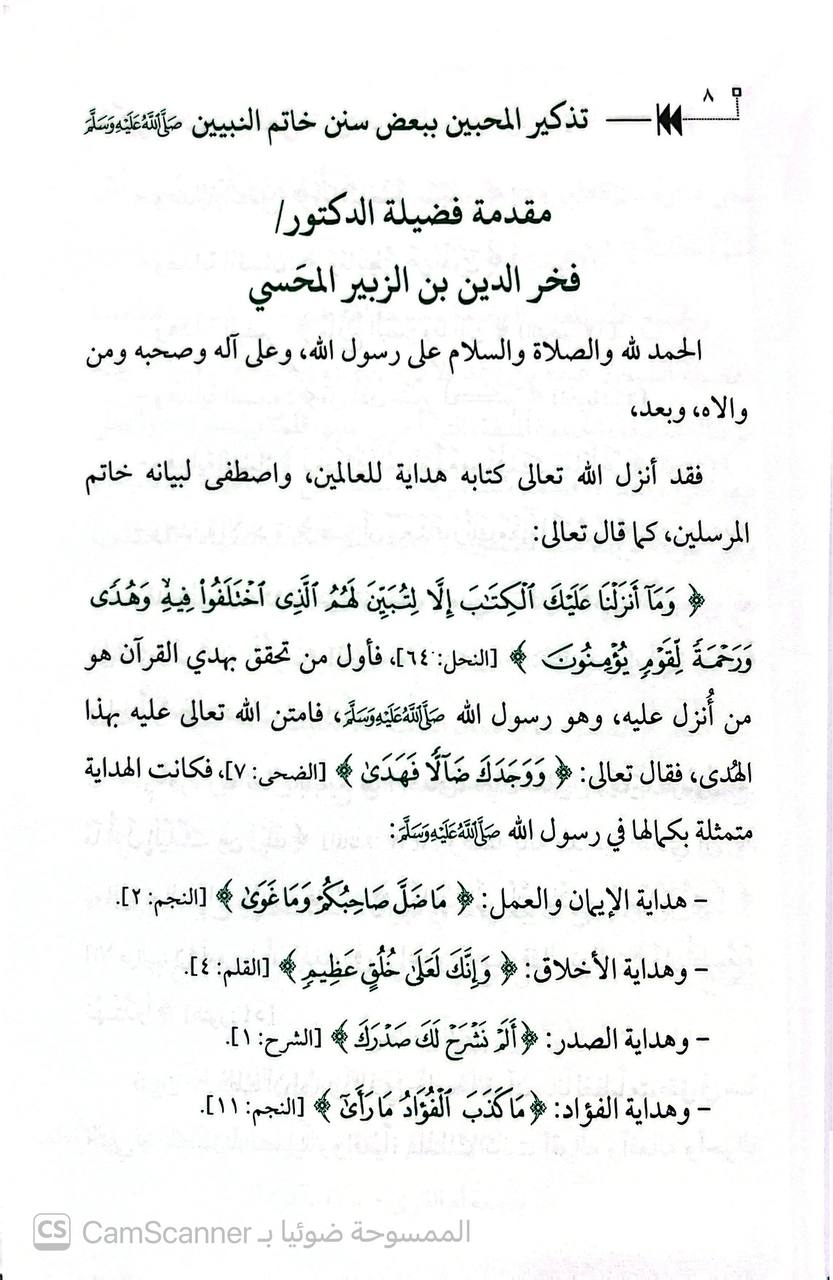 ٨
تذكير المحبين ببعض سنن خاتم النبيين صَلَّىٱللَّهُعَلَيْهِوَسَلَّمَ
مقدمة فضيلة الدكتور/
فخر الدين بن الزبير المحَسي
الحمد لله والصلاة والسلام على رسول الله، وعلى آله وصحبه ومن
والاه، وبعد،
فقد أنزل الله تعالى كتابه هداية للعالمين، واصطفى لبيانه خاتم
المرسلين، كما قال تعالى:
﴿ وَمَآ أَنزَلۡنَا عَلَيۡكَ ٱلۡكِتَٰبَ إِلَّا لِتُبَيِّنَ لَهُمُ ٱلَّذِى ٱخۡتَلَفُواْ فِيهِ وَهُدٗى
وَرَحۡمَةٗ لِّقَوۡمٖ يُؤۡمِنُونَ ﴾ [النحل: ٦٤]، فأول من تحقق بهدي القرآن هو
من أُنزل عليه، وهو رسول الله صَلَّىٱللَّهُعَلَيْهِوَسَلَّمَ، فامتن الله تعالى عليه بهذا
الهُدى، فقال تعالى: ﴿ وَوَجَدَكَ ضَآلّٗا فَهَدَىٰ ﴾ [الضحى: ٧]، فكانت الهداية
متمثلة بكمالها في رسول الله صَلَّىٱللَّهُعَلَيْهِوَسَلَّمَ:
- هداية الإيمان والعمل: ﴿ مَا ضَلَّ صَاحِبُكُمۡ وَمَا غَوَىٰ ﴾ [النجم: ٢].
- وهداية الأخلاق: ﴿ وَإِنَّكَ لَعَلَىٰ خُلُقٍ عَظِيمٖ ﴾ [القلم: ٤].
- وهداية الصدر: ﴿ أَلَمۡ نَشۡرَحۡ لَكَ صَدۡرَكَ ﴾ [الشرح: ١].
- وهداية الفؤاد: ﴿ مَا كَذَبَ ٱلۡفُؤَادُ مَا رَأَىٰٓ ﴾ [النجم: ١١].
CS الممسوحة ضوئيا بـ CamScanner